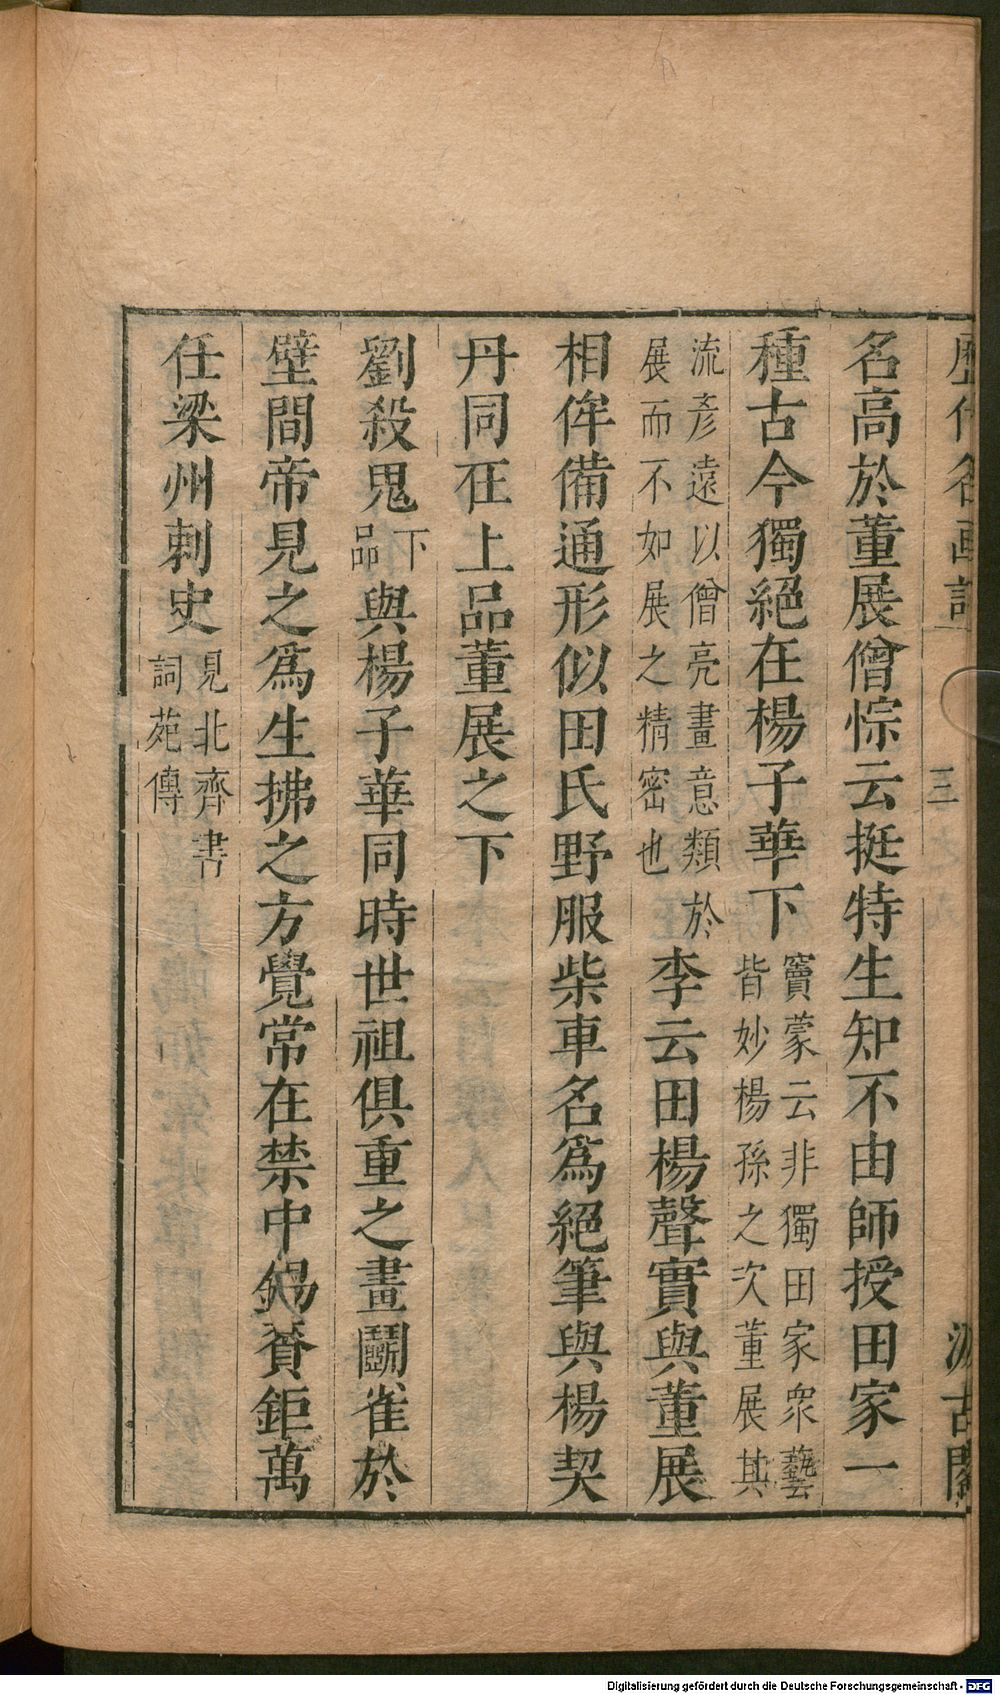 歷代名畫記
三
汲古閣
名高於董展僧悰云挺特生知不由師授田家一
種古今獨絕在楊子華下竇蒙云非獨田家衆藝皆妙楊孫之次董展其
流彥遠以僧亮畫意類於展而不如展之精密也李云田楊聲實與董展
相侔備通形似田氏野服柴車名為絕筆與楊契
丹同在上品董展之下
劉殺鬼下品與楊子華同時世祖俱重之畫鬬雀於
壁間帝見之為生拂之方覺常在禁中錫賚鉅萬
任梁州刺史見北齊書詞苑傳
Digitalisierung gefördert durch die Deutsche Forschungsgemeinschaft - DFG